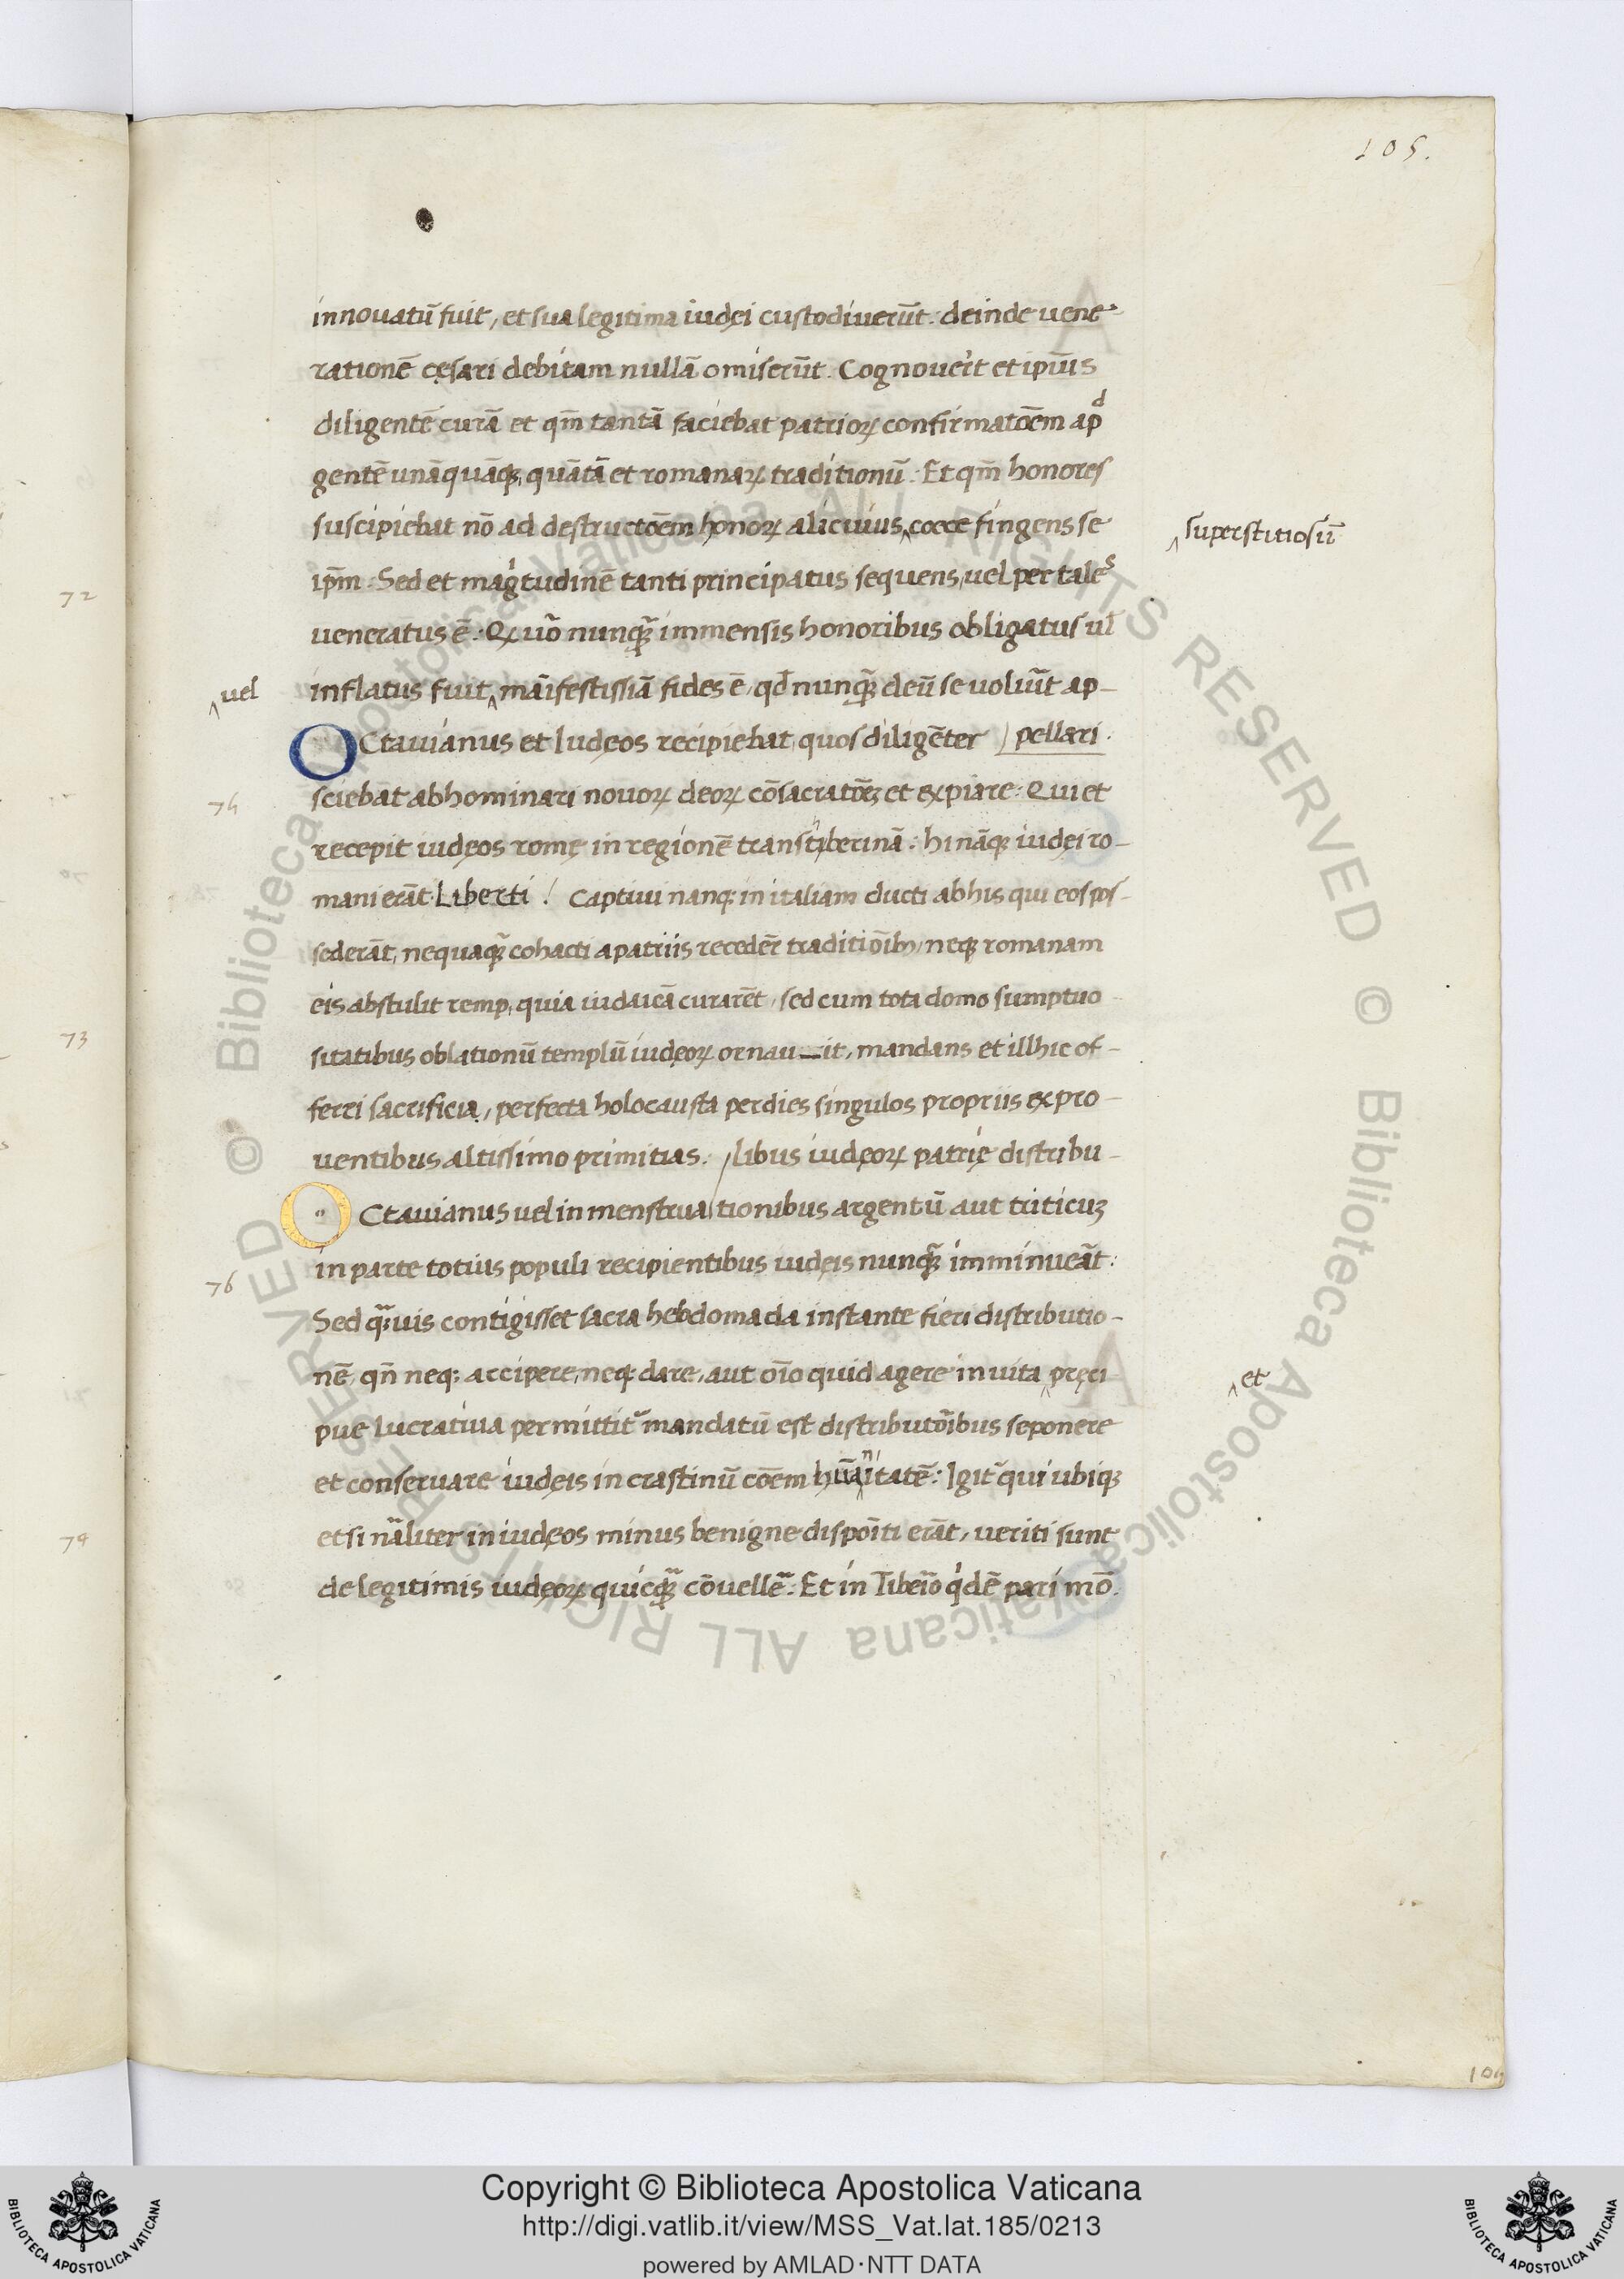 105.
innouatū fuit, et sua legitima iudęi custodiuerūt: deinde uene-
rationē cęsari debitam nullā omiserūt. Cognouerīt et ipīus
diligentē curā et qm̄ tantā faciebat patrioꝝ confirmatōem apᵈ
gentē unāquāqꝫ, quātā et romanaꝝ traditionū. Et qm̄ honores
suscipiebat nō ad destructōem honoꝝ alicuius ‸ coece fingens se
‸ superstitiosū
ip̄m. Sed et magⁱtudinē tanti principatus sequens, uel per tales
ueneratus ē. Qꝫ uō nunqꝫ̄ immensis honoribus obligatus ul̄
inflatus fuit ‸ maīfestissiā fides ē, qđ nunqꝫ̄ deū se uoluīt ap-
‸ uel
OCtauianus et Iudęos recipiebat, quos diligēter / pellari.
74
sciebāt abhominari nouoꝝ deoꝝ cōsacratōeꝫ et expiare: Qui et
recepit iudęos romę in regionē transtⁱberinā: hi nāqꝫ iudęi ro-
mani erāt Liberti! Captiui nanqꝫ in italiam ducti ab his qui eos pos-
sederāt, nequaqꝫ̄ cohacti a patriis recedēr traditiōibꝫ, neqꝫ romanam
eis abstulit remp, quia iudaicā curarēt, sed cum tota domo sumptuo
sitatibus oblationū templū iudęoꝝ ornau_it, mandans et illhic of-
ferri sacrificia, perfecta holocausta per dies singulos propriis ex pro-
uentibus altissimo primitias. / libus iudęoꝝ patrię distribu-
OCtauianus uel in menstrua / tionibus argentū aut triticuꝫ
76
in parte totius populi recipientibus iudęis nunqꝫ̄ imminueāt:
Sed qꝫ̄uis contigisset sacra hebdomada instante fieri distributio-
nē, qn̄ neqꝫ accipere, neqꝫ dare, aut oīo quid agere in uita ‸ pręci
‸ et
pue lucratiua permittitᷣ mandatū est distributōibus seponere
et conseruare iudęis in crastinū cōem hūanitatē: Igitᷣ qui ubiqꝫ
et si nāliter in iudęos minus benigne dispoīti erāt, ueriti sunt
de legitimis iudęoꝝ quicqꝫ̄ cōuellē: Et in Tibeīo qⁱdē pari mō.
72
73
79
104
Copyright © Biblioteca Apostolica Vaticana
http://digi.vatlib.it/view/MSS_Vat.lat.185/0213
powered by AMLAD·NTT DATA
BIBLIOTECA APOSTOLICA VATICANA
BIBLIOTECA APOSTOLICA VATICANA
© Biblioteca Apostolica Vaticana ALL RIGHTS RESERVED © Biblioteca Apostolica Vaticana ALL RIGHTS RESERVED